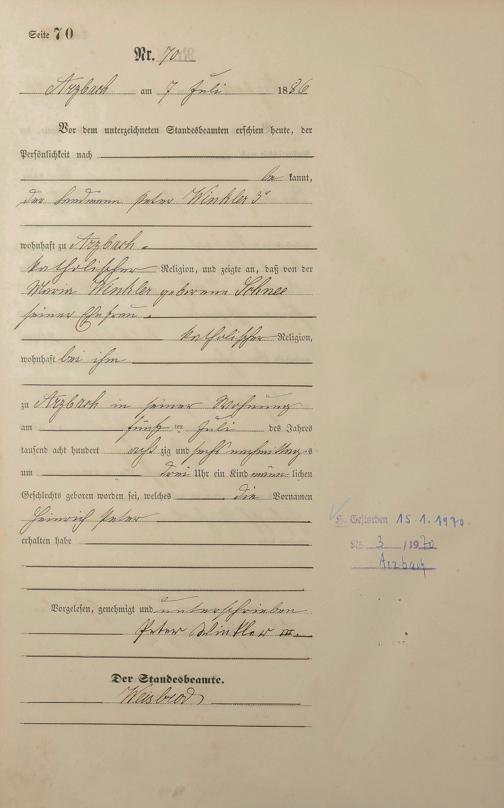 Seite 70
Nr. 70
Arzbach am 7 Juli 1886
Vor dem unterzeichneten Standesbeamten erschien heute, der
Persönlichkeit nach
be kannt,
der Landmann Peter Winkler 3r
wohnhaft zu Arzbach
katholischer Religion, und zeigte an, daß von der
Maria Winkler geborene Schnee
seiner Ehefrau
katholischer Religion,
wohnhaft bei ihm
zu Arzbach in seiner Wohnung
am fünf ten Juli des Jahres
tausend acht hundert acht zig und sechs nachmittag s
um drei Uhr ein Kind männ lichen
Geschlechts geboren worden sei, welches die Vornamen
Heinrich Peter
erhalten habe
Vorgelesen, genehmigt und unterschrieben
Peter Winkler III.
Der Standesbeamte.
Weisbrod
Gestorben 15.1.1970
Nr. 3 /1970
Arzbach